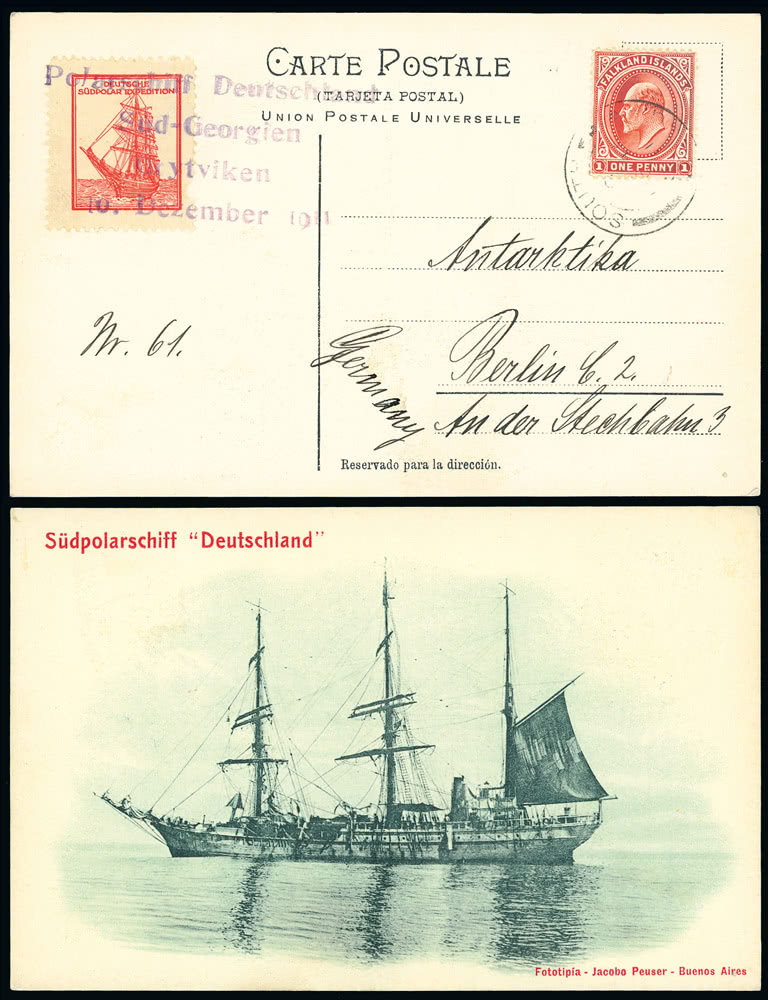 CARTE POSTALE
(TARJETA POSTAL)
UNION POSTALE UNIVERSELLE
DEUTSCHE
SÜDPOLAR EXPEDITION
Polarschiff Deutschland
Süd-Georgien
Grytviken
10. Dezember 1911
FALKLAND ISLANDS
1 ONE PENNY 1
SOUTH
Antarktika
Nr. 61.
Berlin C. 2.
Germany
An der Stechbahn 3
Reservado para la dirección.
Südpolarschiff "Deutschland"
Fototipía - Jacobo Peuser - Buenos Aires